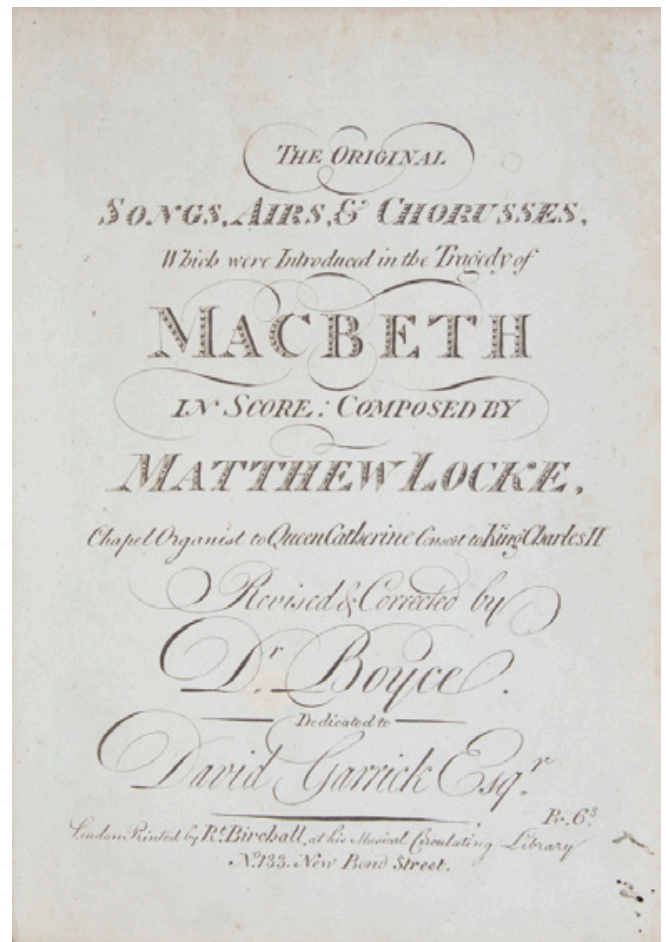 THE ORIGINAL
SONGS, AIRS, & CHORUSSES,
Which were Introduced in the Tragedy of
MACBETH
IN SCORE: COMPOSED BY
MATTHEW LOCKE,
Chapel Organist to Queen Catherine Consort to King Charles II
Revised & Corrected by
Dr. Boyce.
Dedicated to
David Garrick Esqr.
Pr. 6s
London Printed by Rt. Birchall, at his Musical Circulating Library
No. 133. New Bond Street.